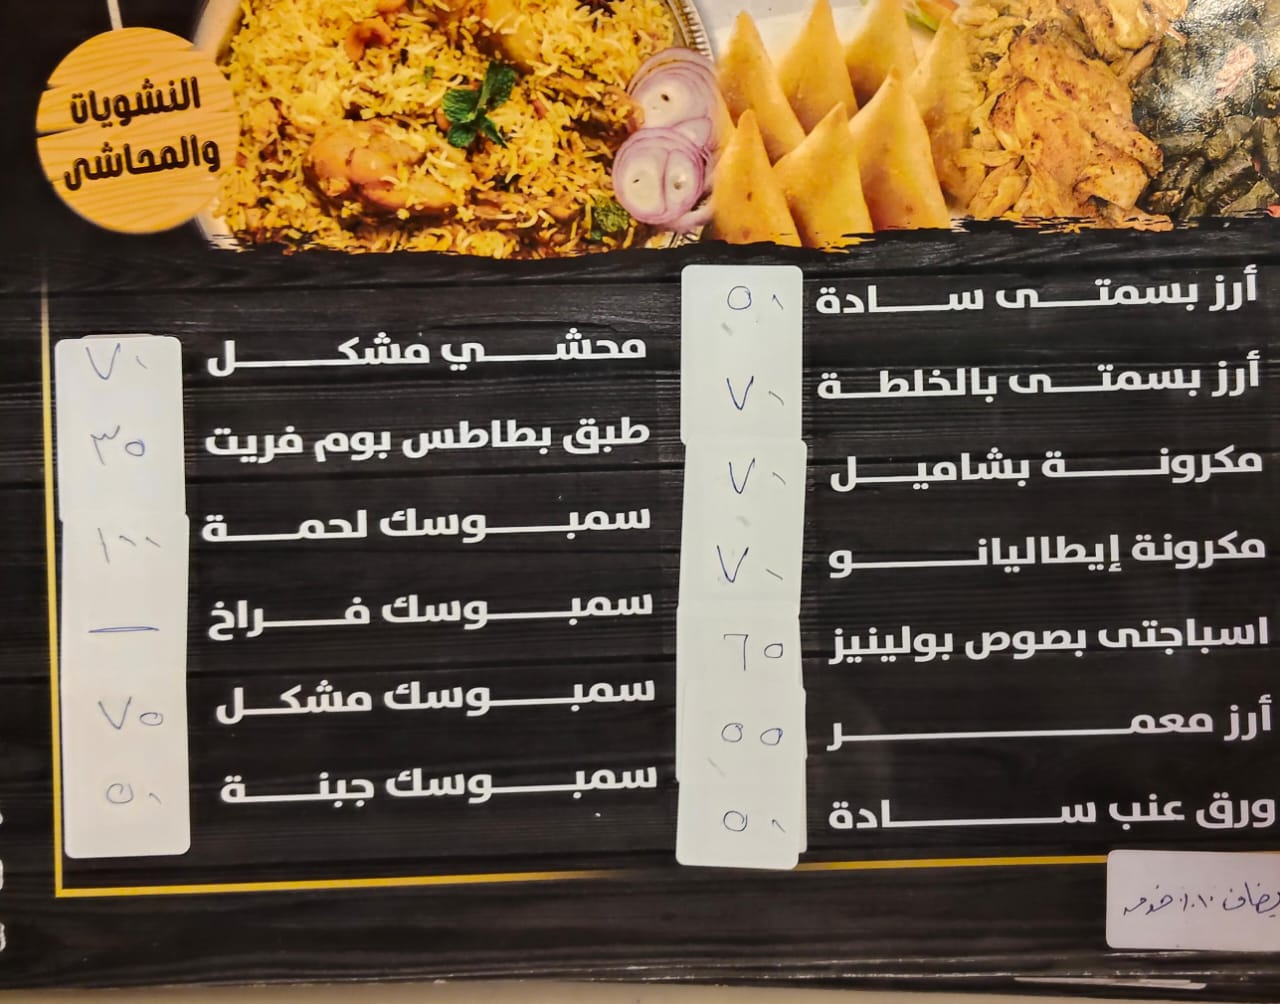 النشويات
والمحاشى
أرز بسمتى سادة ٥٠
أرز بسمتى بالخلطة ٧٠
مكرونة بشاميل ٧٠
مكرونة إيطاليانو ٧٠
اسباجتى بصوص بولينيز ٦٥
أرز معمر ٥٥
ورق عنب سادة ٥٠
محشي مشكل ٧٠
طبق بطاطس بوم فريت ٣٥
سمبوسك لحمة ١٠٠
سمبوسك فراخ —
سمبوسك مشكل ٧٥
سمبوسك جبنة ٥٠
يضاف ١٠٪ خدمه